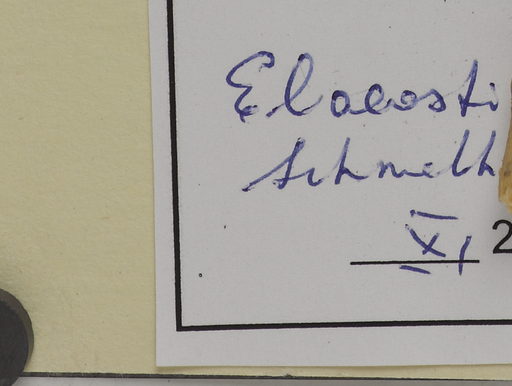 Elacosti
Schmelh
XI 2